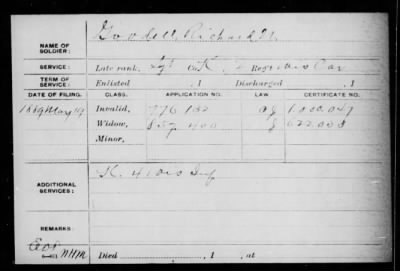 NAME OF SOLDIER: Goodell, Richard M.
SERVICE: Late rank, Sgt Co. K, 2 Reg't Wis Cav
TERM OF SERVICE: Enlisted , 1 Discharged , 1
DATE OF FILING. CLASS. APPLICATION NO. LAW CERTIFICATE NO.
1889 May 29 Invalid, 776 182
Widow, 857 400 622.000
Minor,
ADDITIONAL SERVICES: K. 41 Wis Inf
REMARKS:
Died , 1 , at